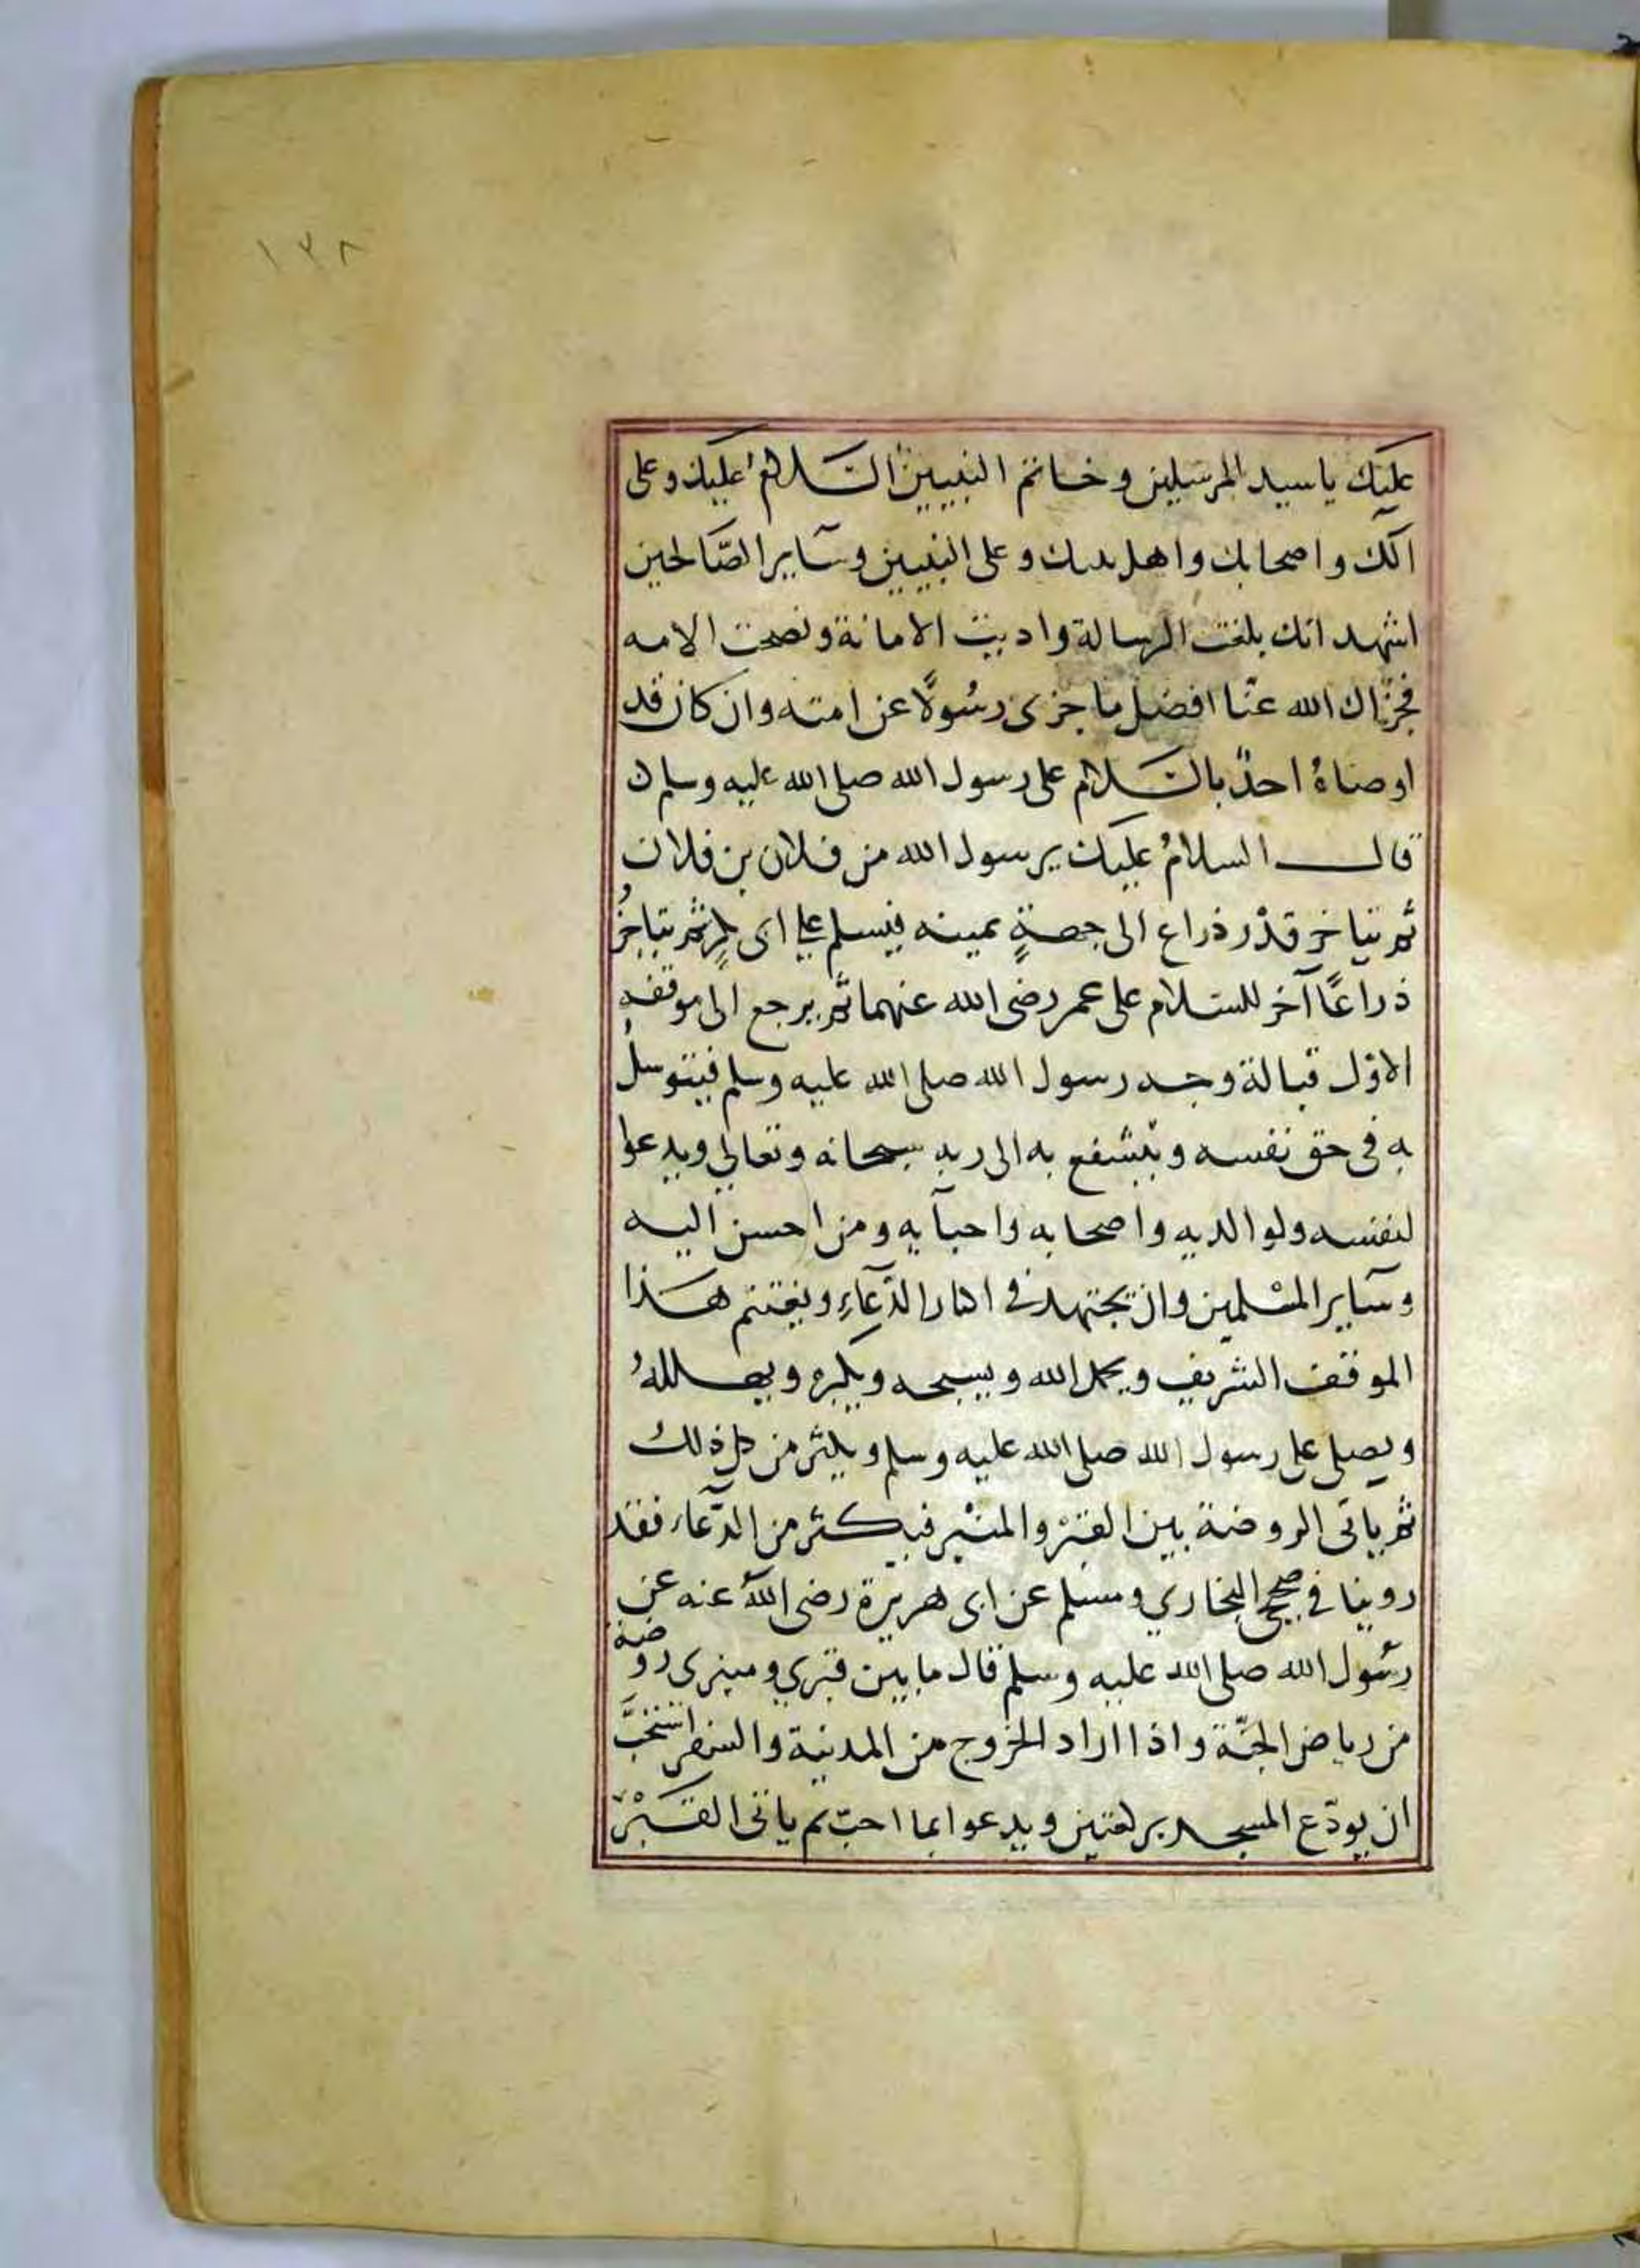 ١٢٨
عليك ياسيد المرسلين وخاتم النبيين السَّلامُ عليك وعلى
آلك واصحابك واهل بيتك وعلى النبيين وسآير الصّالحين
اشهد انك بلغت الرسالة واديت الامانة ونصحت الامه
فجزاك الله عنّا افضل ما جزى رسُولًا عن امته وان كان قد
اوصاهُ احدٌ بالسَّلام على رسول الله صلى الله عليه وسلم
قال السلامُ عليك يرسول الله من فلان بن فلان
ثم يتاخر قدْر ذراع الى جهةٍ يمينه فيسلم على ابى بكرٍ ثم يتاخرُ
ذراعًا آخر للسَّلام على عمر رضى الله عنهما ثم يرجع الى موقفه
الاوّل قبالة وجه رسول الله صلى الله عليه وسلم فيتوسلُ
به فى حق نفسه ويتشفع به الى ربه سبحانه وتعالى ويدعوا
لنفسه ولوالديه واصحابه واحبآيه ومن احسن اليه
وسآير المسْلمين وان يجتهد فى اكثار الدّعآءِ ويغتنم هذا
الموقف الشريف ويحمد الله ويسبحه ويكبره ويهللهُ
ويصلى على رسول الله صلى الله عليه وسلم ويكثر من كل ذلك
ثم ياتى الروضة بين القبْر والمنْبر فيكثر من الدّعآء فقد
روينا في صحيح البخاري ومسلم عن ابى هريرة رضى اللهُ عنه عن
رسُول الله صلى الله عليه وسلم قال ما بين قبري ومنبرى روضة
من رياض الجنّة واذا اراد الخروج من المدينة والسفر استحبَّ
ان يودّع المسجد بركعتين ويدعوا بما احبّ ثم ياتى القبْرَ